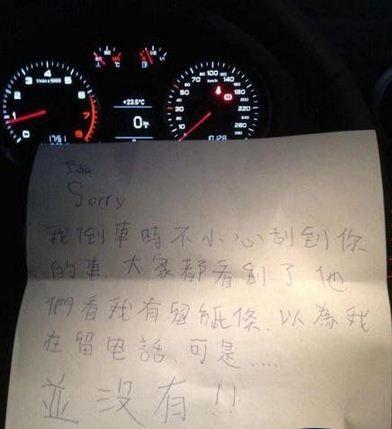 +23.5°C
0
Sorry
我倒車時不小心刮到你
的車，大家都看到了，他
們看我有留紙條，以為我
在留电話，可是....
並没有!!